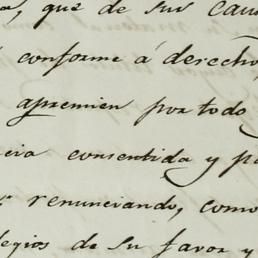 , que de sus cau
conforme á derecho,
apremien por todo
cia consentida y pa
renunciando, como
legios de su favor y